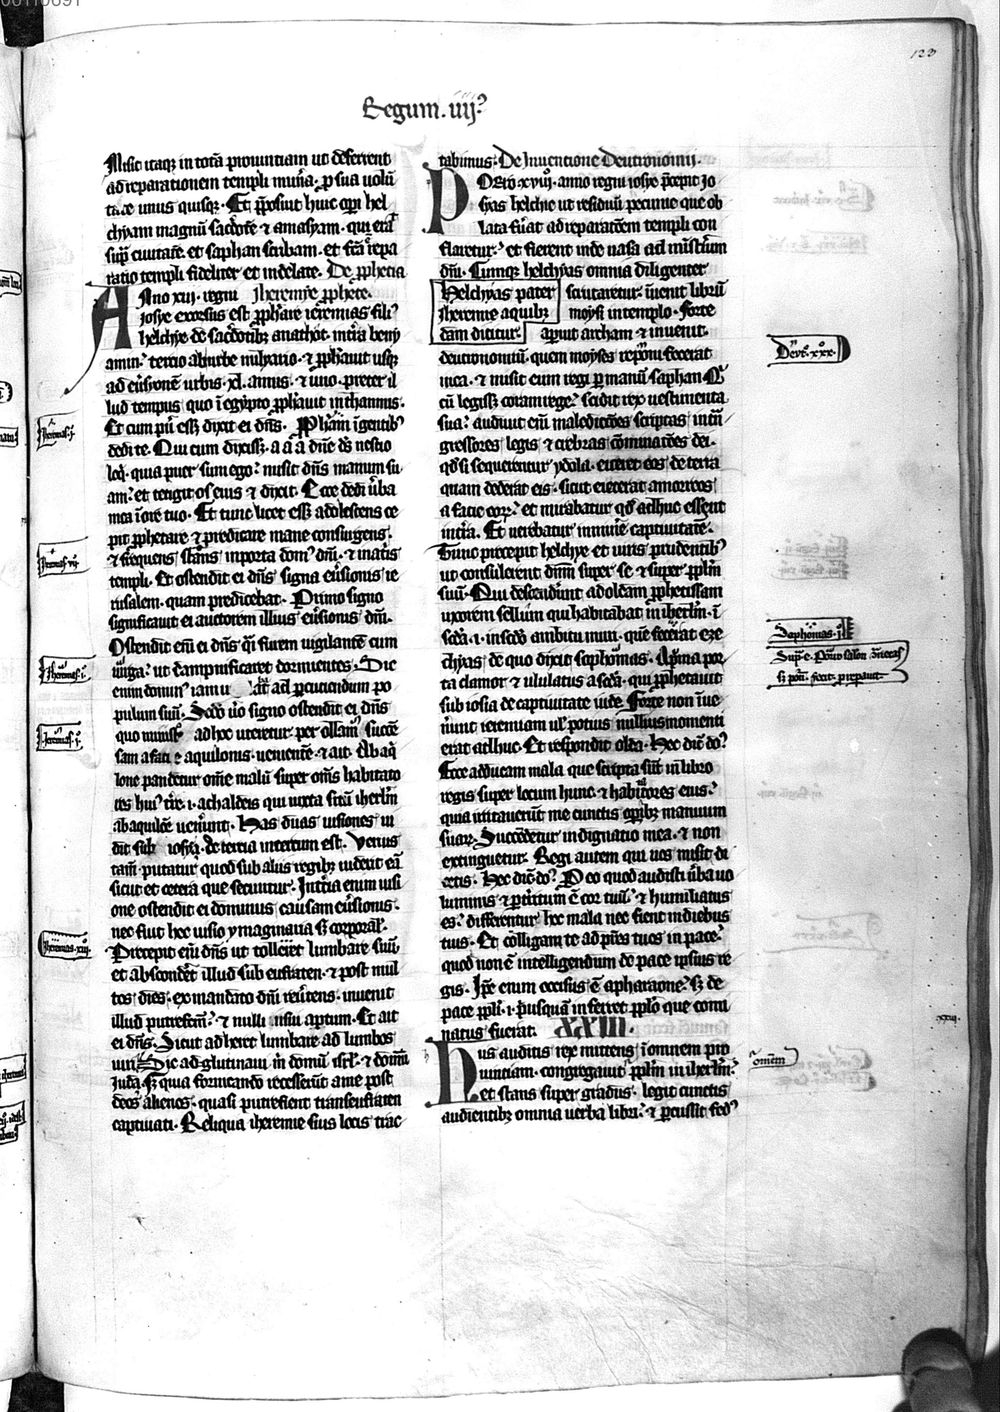 133
Regum. iiij.
Misit itaqꝫ in totā prouintiam ut deferrent
ad reparationem templi mun̄a. ꝓ sua uolū
tate unus quisqꝫ. Et p̄posuit huic operi hel
chyam magnū sacdotē & amasyam. qui erat
sup̄ ciuitatē. et saphan scribam. et fc̄a ē repa
ratio templi fideliter et indelate. De ꝓphetia
Anno xiij. regni Iheremye ꝓphete.
Iosye exorsus est ꝓphetare ieremias fili᾿
helchye de sacdotibꝫ anathot. in tr̄a beny
amin. tercio ab urbe miliario. & ꝓphauit usqꝫ
ad euersionē urbis. xl. annis. & uno. preter il
lud tempus quo ī egypto ꝓphauit in thannis.
Et cum pu͛ essꝫ dixit ei dn̄s. Ꝓphām ī gentibꝫ
dedi te. Qui cum dixissꝫ. a a a dn̄e ds̄ nescio
loq̄. quia puer sum ego. misit dn̄s manum su
am. et tetigit os eius & dixit. Ecce dedi uerba
mea ī ore tuo. Et tunc licet essꝫ adolescens ce
pit ꝓphetare & predicare mane consurgens.
& frequens stans in porta dom᾿ dn̄i. & in atriis
templi. Et ostendit ei dn̄s signa euersionis ie
rusalem. quam predicebat. Primo signo
significauit ei auctorem illius euersionis dn̄m.
Ostendit eni ei dn̄s q̄si furem uigilantē cum
uirga. ut dampnificaret dormientes. Sic
enim domin᾿ iam ad percutiendum po
pulum suū. Scdo ūo signo ostendit ei dn̄s
quo ad hoc uteretur per ollam succē
sam a facie aquilonis. uenientē & ait. Ab aqi
lone pandetur om̄e malū super om̄s habitato
res hui᾿ tr̄e. i. a chaldeis qui iuxta situ ihrl̄m
ab aquilōe uen̄unt. Has duas uisiones ui
dit sub iosia. de tercia incertum est. Verius
tam̄ putatur quod sub aliis regibꝫ uiderit eā
sicut et cetera que secuntur. In tercia enim uisi
one ostendit ei dominus causam euersionis.
nec fuit hec uisio ymaginaria sꝫ corporal᾿.
Precepit eni dn̄s ut tolleret lumbare suū
et absconderet illud sub eufraten. & post mul
tos dies. ex mandato dn̄i reuertens. inuenit
illud putrefcm̄. & nulli usui aptum. Et ait
ei dn̄s. Sicut adheret lumbare ad lumbos
uiri. Sic adglutinaui m̄ domū isrl̄. & domū
iuda. sꝫ quia fornicando recesserūt a me post
deos alienos. quasi putrefient trans eufraten
captiuati. Reliqua iheremie suis locis trac
tabimus. De Inuentione Deutronomii.
Porro xviij. anno regni iosye p̄cepit Io
sias helchie ut residuū pecunie que ob
lata fuerat ad reparatōem templi con
flaretur. et fierent inde uasa ad ministerium
dn̄i. Cumqꝫ helchyas omnia diligenter
Helchyas pater scrutaretur. inuenit librū
Iheremie a quibꝫ moysi in templo. Forte
dam dicitur. apuit archam & inuenit
deutronomiū. quem moyses reponi fecerat
in ea. & misit eum regi per manū saphan. Q
cū legissꝫ coram rege. scidit rex uestimenta
sua. audiuit eni maledictōes scriptas in tn̄
gressores legis & crebras cōminatōes dei.
qd̄ si sequerentur ydola. eiceret eos de terra
quam dederat eis. sicut eiecerat amorreos
a facie eoꝝ. et mirabatur qd̄ adhuc essent
in tr̄a. Et uerebatur inminere captiuitatē.
Tunc precepit helchye et uiris prudentibꝫ
ut consulerent dn̄m super se & super ꝓplm̄
suū. Qui descenderunt ad oldam ꝓphetissam
uxorem sellum qui habitabat in ihrl̄m. ī
scda. i. in scdo ambitu muri. quē fecerat eze
chyas. de quo dixit sophonias. A prima por
ta clamor & ululatus a scda. qui ꝓphetauit
sub iosia de captiuitate iude. Forte non īue
nerunt ieremiam ul᾿ potius nullius momenti
erat adhuc. Et respondit olda. Hec dic̄ do.
Ecce adducam mala que scripta sūt in libro
regis super locum hunc & habitatores eius.
quia irritauerūt me cunctis opibꝫ manuum
suaꝝ. Succendetur indignatio mea. & non
extinguetur. Regi autem qui uos misit di
cetis. Hec dic̄ do. P eo quod audisti uerba uo
luminis & perterritum ē cor tuū. & humiliatus
es. differentur hec mala nec fient in diebus
tuis. Et colligam te ad patres tuos in pace.
quod non ē intelligendum de pace ipsius re
gis. Ipse enim occisus ē a pharaone. sꝫ de
pace ꝓpli. i. p̄usquā inferret ꝓplo que comi
natus fuerat. XXIII.
Hiis auditis rex mittens ī omnem pro
uinciam. congregauit ꝓplm̄ in ihrl̄m.
et stans super gradus. legit cunctis
audientibꝫ omnia uerba libri. & percussit fed᾿
Iheremias. i.
Ieremias. vij.
Iheremias. i.
Ieremias. i.
Iheremias. xiij.
Deut. xxx.
Sophonias. i.
omēm
xxiij.